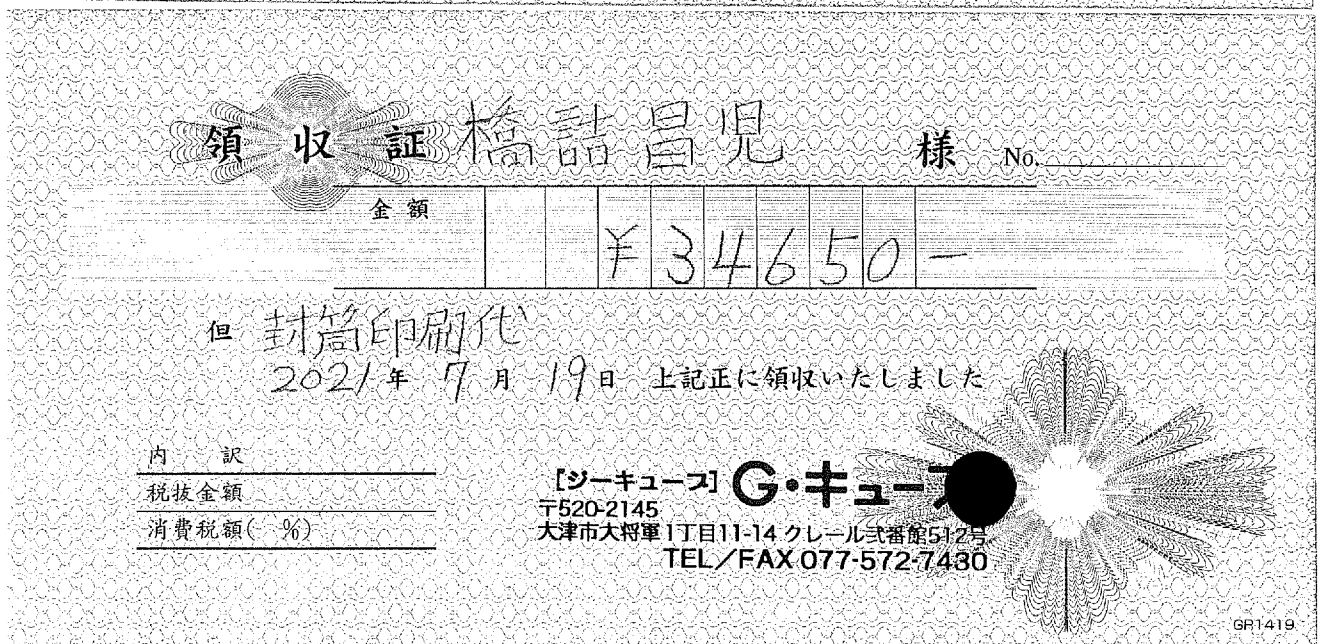 領収証 橋詰昌児 様 No.
金額 ¥34650-
但 封筒印刷代
2021年 7月 19日 上記正に領収いたしました
内 訳
税抜金額
消費税額( %)
[ジーキューブ] G・キュー
〒520-2145
大津市大将軍1丁目11-14 クレール弐番館512号
TEL/FAX 077-572-7430
GR1419